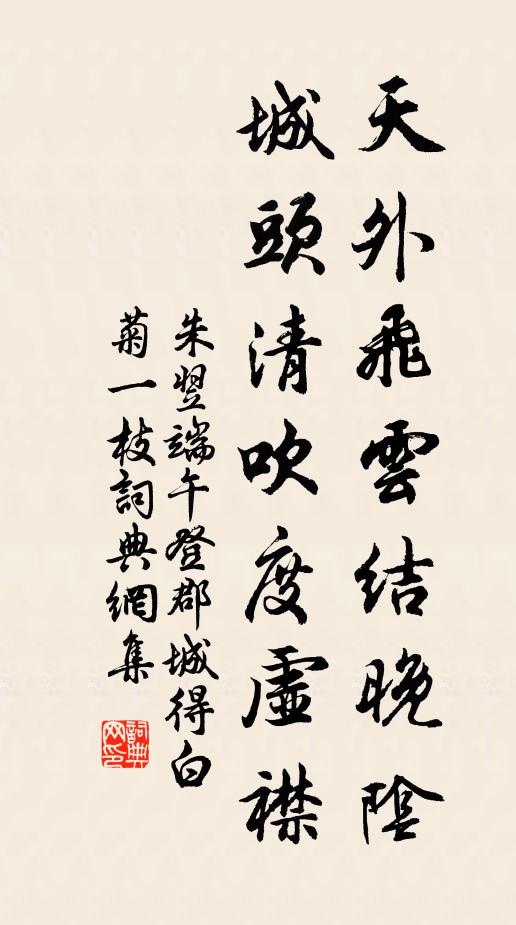 天外飛雲結晚陰
城頭清吹度虛襟
朱翌端午登郡城得白
菊一枝詞典網集